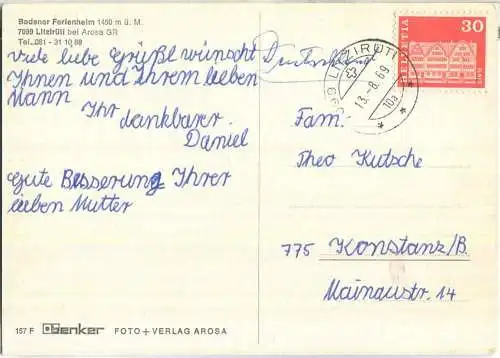 Badener Ferienheim 1450 m ü. M.
7099 Litzirüti bei Arosa GR
Tel. 081 - 31 10 98
Viele liebe Grüße wünscht
Ihnen und Ihrem lieben
Mann
Ihr
dankbarer
Daniel
Gute Besserung Ihrer
lieben Mutter
157 F Denker FOTO + VERLAG AROSA
Deutschland
LITZIRÜTI
13.-8.69
10a
HELVETIA
30
Fam:
Theo Kutsche
775 Konstanz/B.
Mainaustr. 14